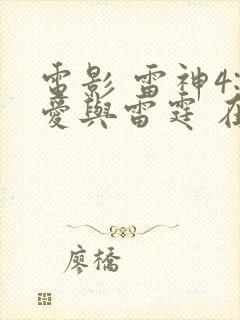 雷影 雷神4:
愛與雷霆 在
廖橋